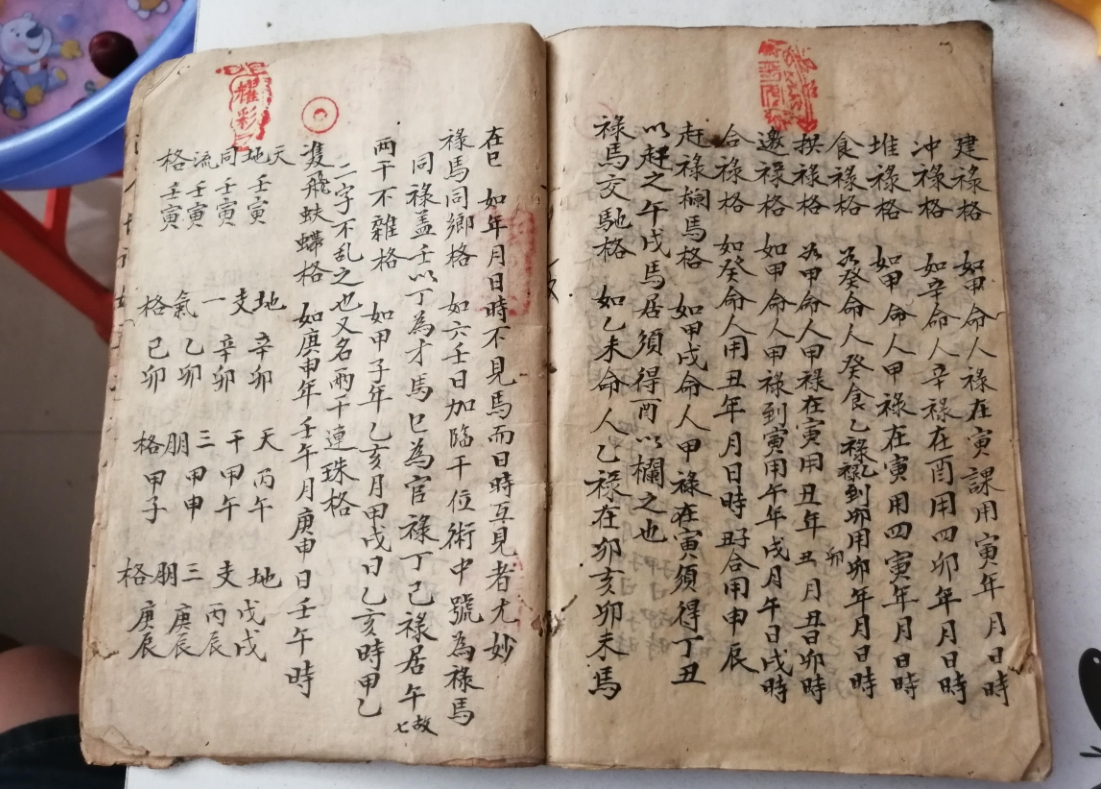 建禄格 如甲命人禄在寅課用寅年月日時
冲禄格 如辛命人辛禄在酉用四卯年月日時
堆禄格 如甲命人甲禄在寅用四寅年月日時
食禄格 如癸命人癸食乙禄乙禄到卯用卯年月日時
拱禄格 如甲命人甲禄在寅用丑年丑月丑日卯時 卯
邀禄格 如甲命人甲禄到寅用午年戌月午日戌時
合禄格 如癸命人用丑年月日時丑子合用申辰
赶禄欄馬格 如甲戌命人甲禄在寅須得丁丑
以赶之午戌馬居須得酉以欄之也
禄馬交馳格 如乙未命人乙禄在卯亥卯未馬
在巳 如年月日時不見馬而日時互見者尤妙
禄馬同鄉格 如六壬日加臨干位術中號為禄馬
同禄盖壬以丁為才馬巳為官禄丁己禄居午故七
兩干不雜格 如甲子年乙亥月甲戌日乙亥時甲乙
二字不乱之也又名兩干連珠格
雙飛蝴蝶格 如庚申年壬午月庚申日壬午時
天地同流格 壬寅 壬寅 壬寅 壬寅
地支一氣格 辛卯 辛卯 乙卯 己卯
天干三朋格 丙午 甲午 甲申 甲子
地支三朋格 戊戌 丙辰 庚辰 庚辰
耀彩